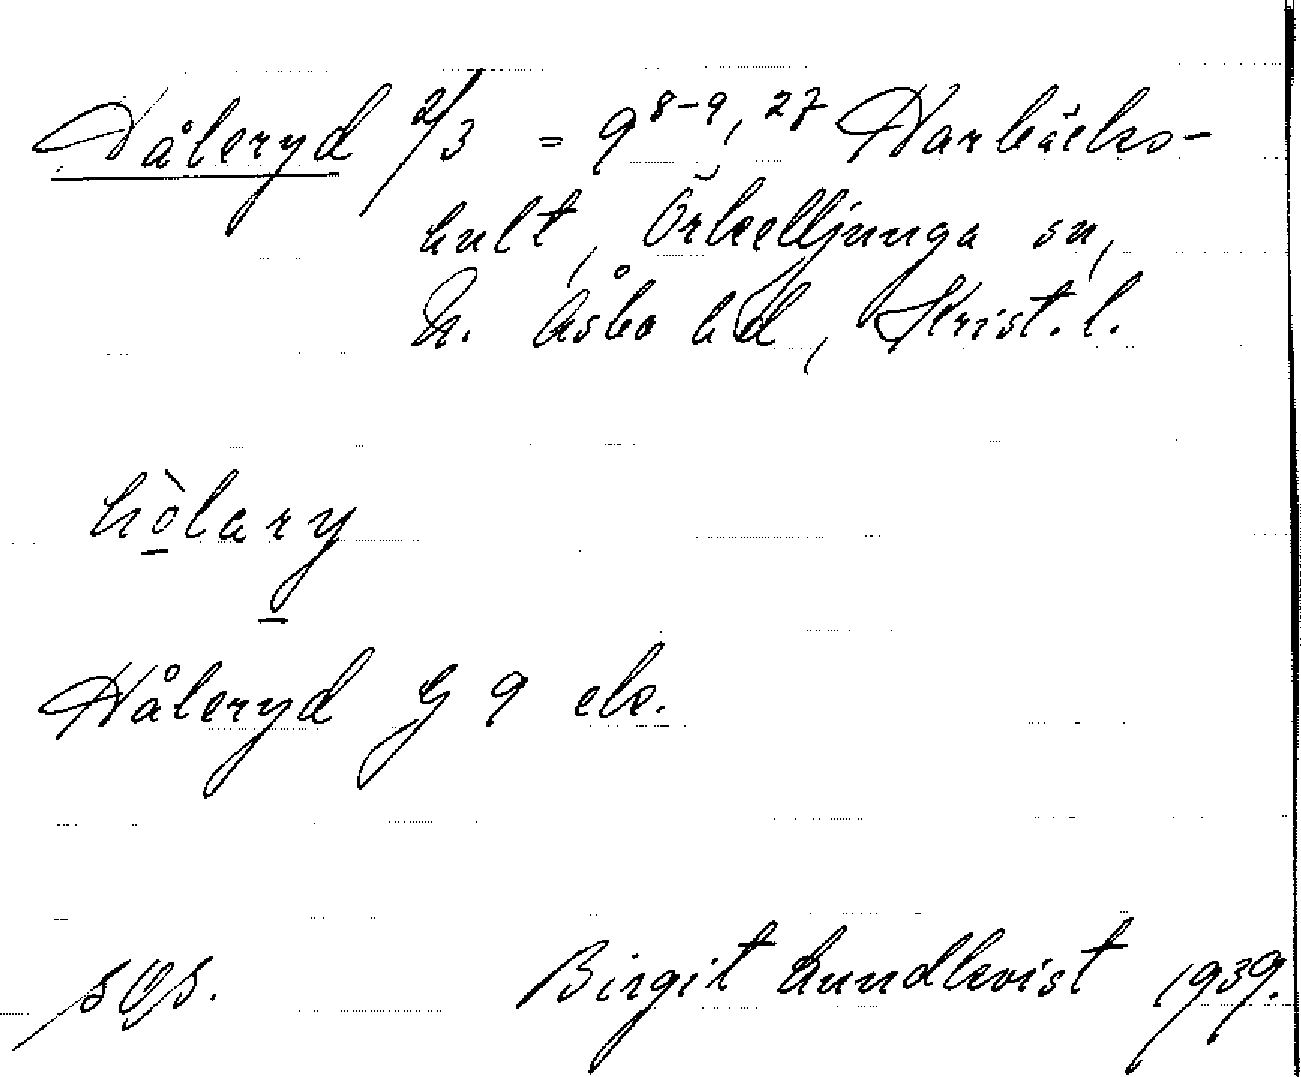 Håleryd 2/3 = 9 8-9, 27 Harbäcks-
hult, Örkelljunga sn,
N. Åsbo hd, Krist. l.
hòlary
Håleryd G 9 ek.
Birgit Lundkvist 1939.